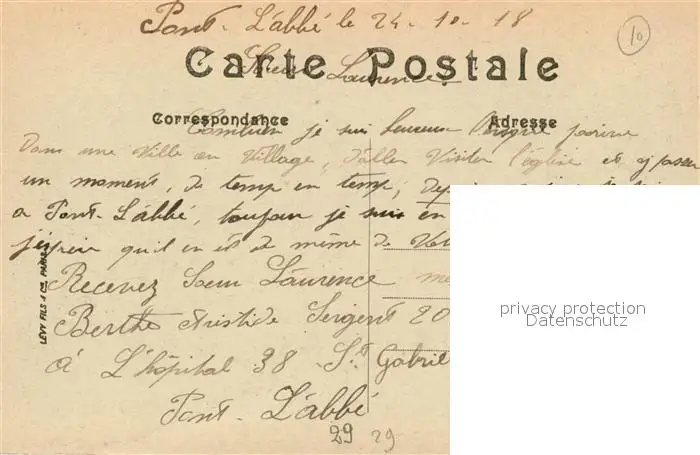 Pont-L'abbé le 24-10-18
10
Carte Postale
Soeur Laurence
Correspondance
Adresse
Combien je suis heureux lorsque j'arrive
Dans une Ville ou Village, d'aller Visiter l'église et d'y passer
un moment, de temp en temp,
a Pont-L'abbé, toujour je suis en
j'espère qu'il en est de même de
Recevez Soeur Laurence
Berthe Aristide Sergent 20
à L'hôpital 38 St Gabriel
Pont-L'abbé
29 29
LEVY FILS & Cie PARIS
privacy protection
Datenschutz